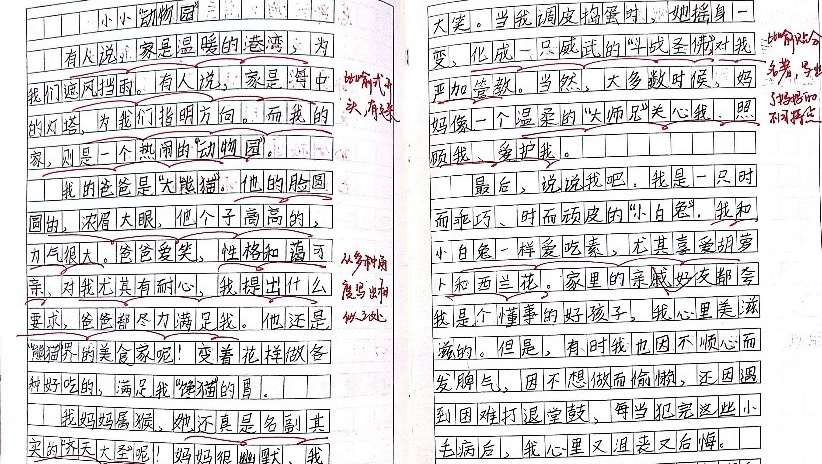 小小"动物园"
有人说，家是温暖的港湾，为
我们遮风挡雨。有人说，家是海中
的灯塔，为我们指明方向。而我的
家，则是一个热闹的"动物园"。
我的爸爸是"大熊猫"。他的脸圆
圆的，浓眉大眼，他个子高高的，
力气很大。爸爸爱笑，性格和蔼可
亲，对我尤其有耐心，我提出什么
要求，爸爸都尽力满足我。他还是
"熊猫"界的美食家呢！变着花样做各
种好吃的，满足我"馋猫"的胃。
我妈妈属猴，她还真是名副其
实的"齐天大圣"呢！妈妈很幽默，我
比喻式开
头，有文采
从多种角
度写出相
似之处
大笑。当我调皮捣蛋时，她摇身一
变，化成一只威武的"斗战圣佛"对我
严加管教。当然，大多数时候，妈
妈像一个温柔的"大师兄"关心我、照
顾我、爱护我。
最后，说说我吧。我是一只时
而乖巧、时而顽皮的"小白兔"。我和
小白兔一样爱吃素，尤其喜爱胡萝
卜和西兰花。家里的亲戚好友都夸
我是个懂事的好孩子，我心里美滋
滋的。但是，有时我也因不顺心而
发脾气，因不想做而偷懒，还因遇
到困难打退堂鼓，每当犯完这些小
毛病后，我心里又沮丧又后悔。
比喻贴合
写出
了妈妈的
不同特征